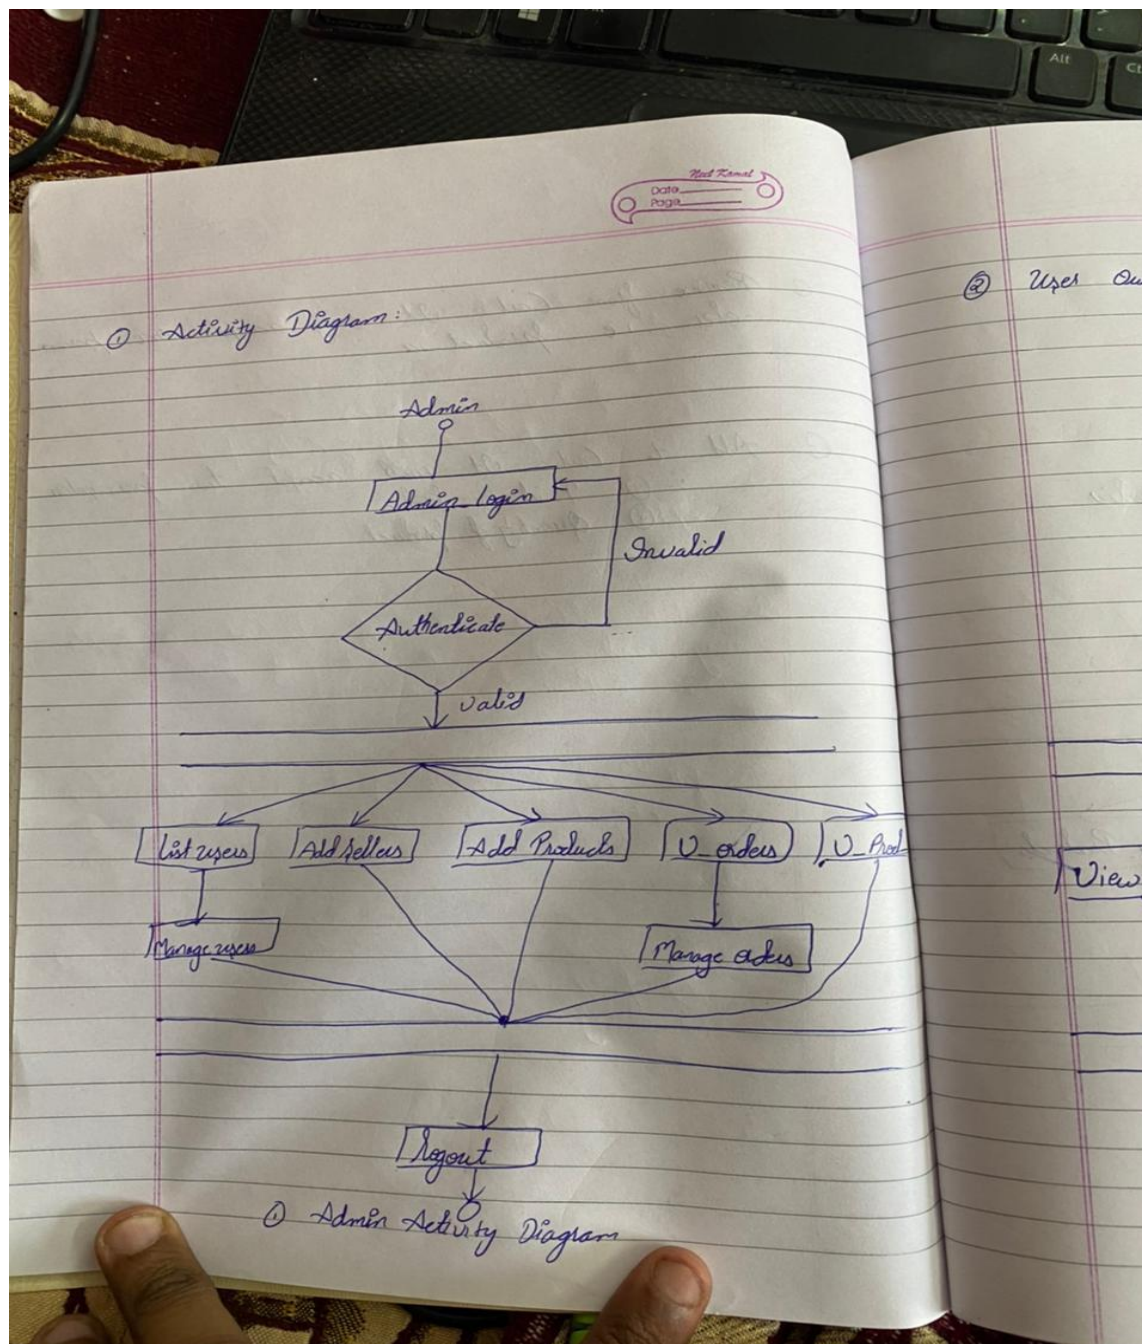 Alt
Ct
Neel Kamal
Date
Page
① Activity Diagram:
Admin
Admin_login
Invalid
Authenticate
valid
List users
Add sellers
Add Products
V_orders
V_Prod
Manage users
Manage orders
logout
① Admin Activity Diagram
② User
View